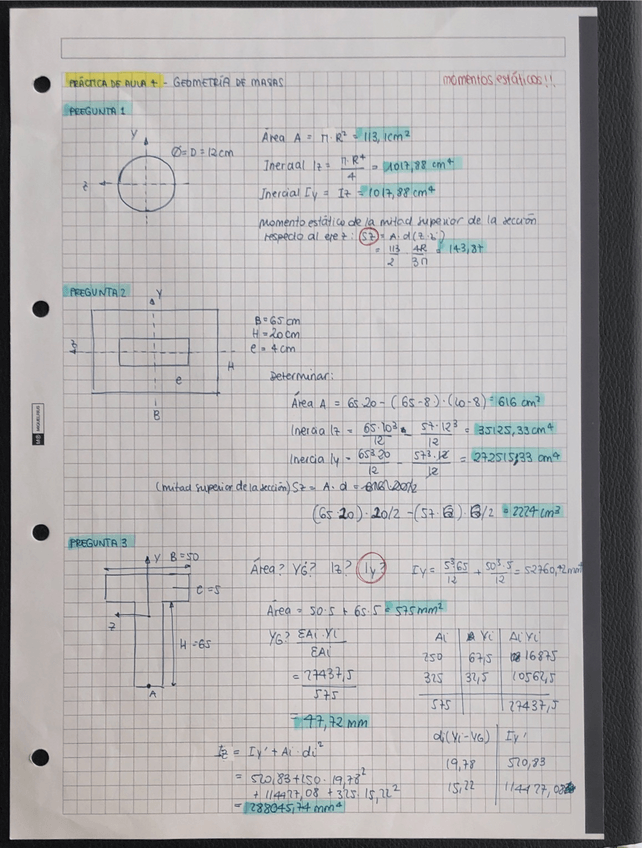 PRÁCTICA DE AULA 4 - GEOMETRÍA DE MASAS
momentos estáticos!!
PREGUNTA 1
Y
Ø=D=12cm
z
Área A = π·R² = 113,1cm²
Inercia Iz = π·R⁴/4 = 1017,88 cm⁴
Inercia Iy = Iz = 1017,88 cm⁴
Momento estático de la mitad superior de la sección
respecto al eje z: Sz = A·d(z-z')
= 113/2 · 4R/3π = 143,84
PREGUNTA 2
Y
z
e
H
B
B=65cm
H=20cm
e=4cm
Determinar:
Área A = 65·20-(65-8)·(20-8) = 616 cm²
Inercia Iz = 65·20³/12 - 57·12³/12 = 35125,33cm⁴
Inercia Iy = 65³·20/12 - 57³·12/12 = 272515,33 cm⁴
(mitad superior de la sección) Sz = A·d =
(65·20)·20/2 -(57·6)·6/2 = 2224 cm³
PREGUNTA 3
Y
B=50
e=5
z
H=65
A
Área? YG? Iz? Iy?
Iy = 5³·65/12 + 50³·5/12 = 52760,42mm⁴
Área = 50·5 + 65·5 = 575mm²
YG? ΣAi·Yi/ΣAi
= 27437,5/575
= 47,72 mm
Ai Yi AiYi
250 67,5 16875
325 32,5 10562,5
575 27437,5
di(Yi-YG) Iy'
19,78 520,83
15,22 114427,08
Iz = Iy' + Ai·di²
= 520,83+250·19,78²
+ 114427,08 + 325·15,22²
= 288045,74 mm⁴
MIQUELRIUS